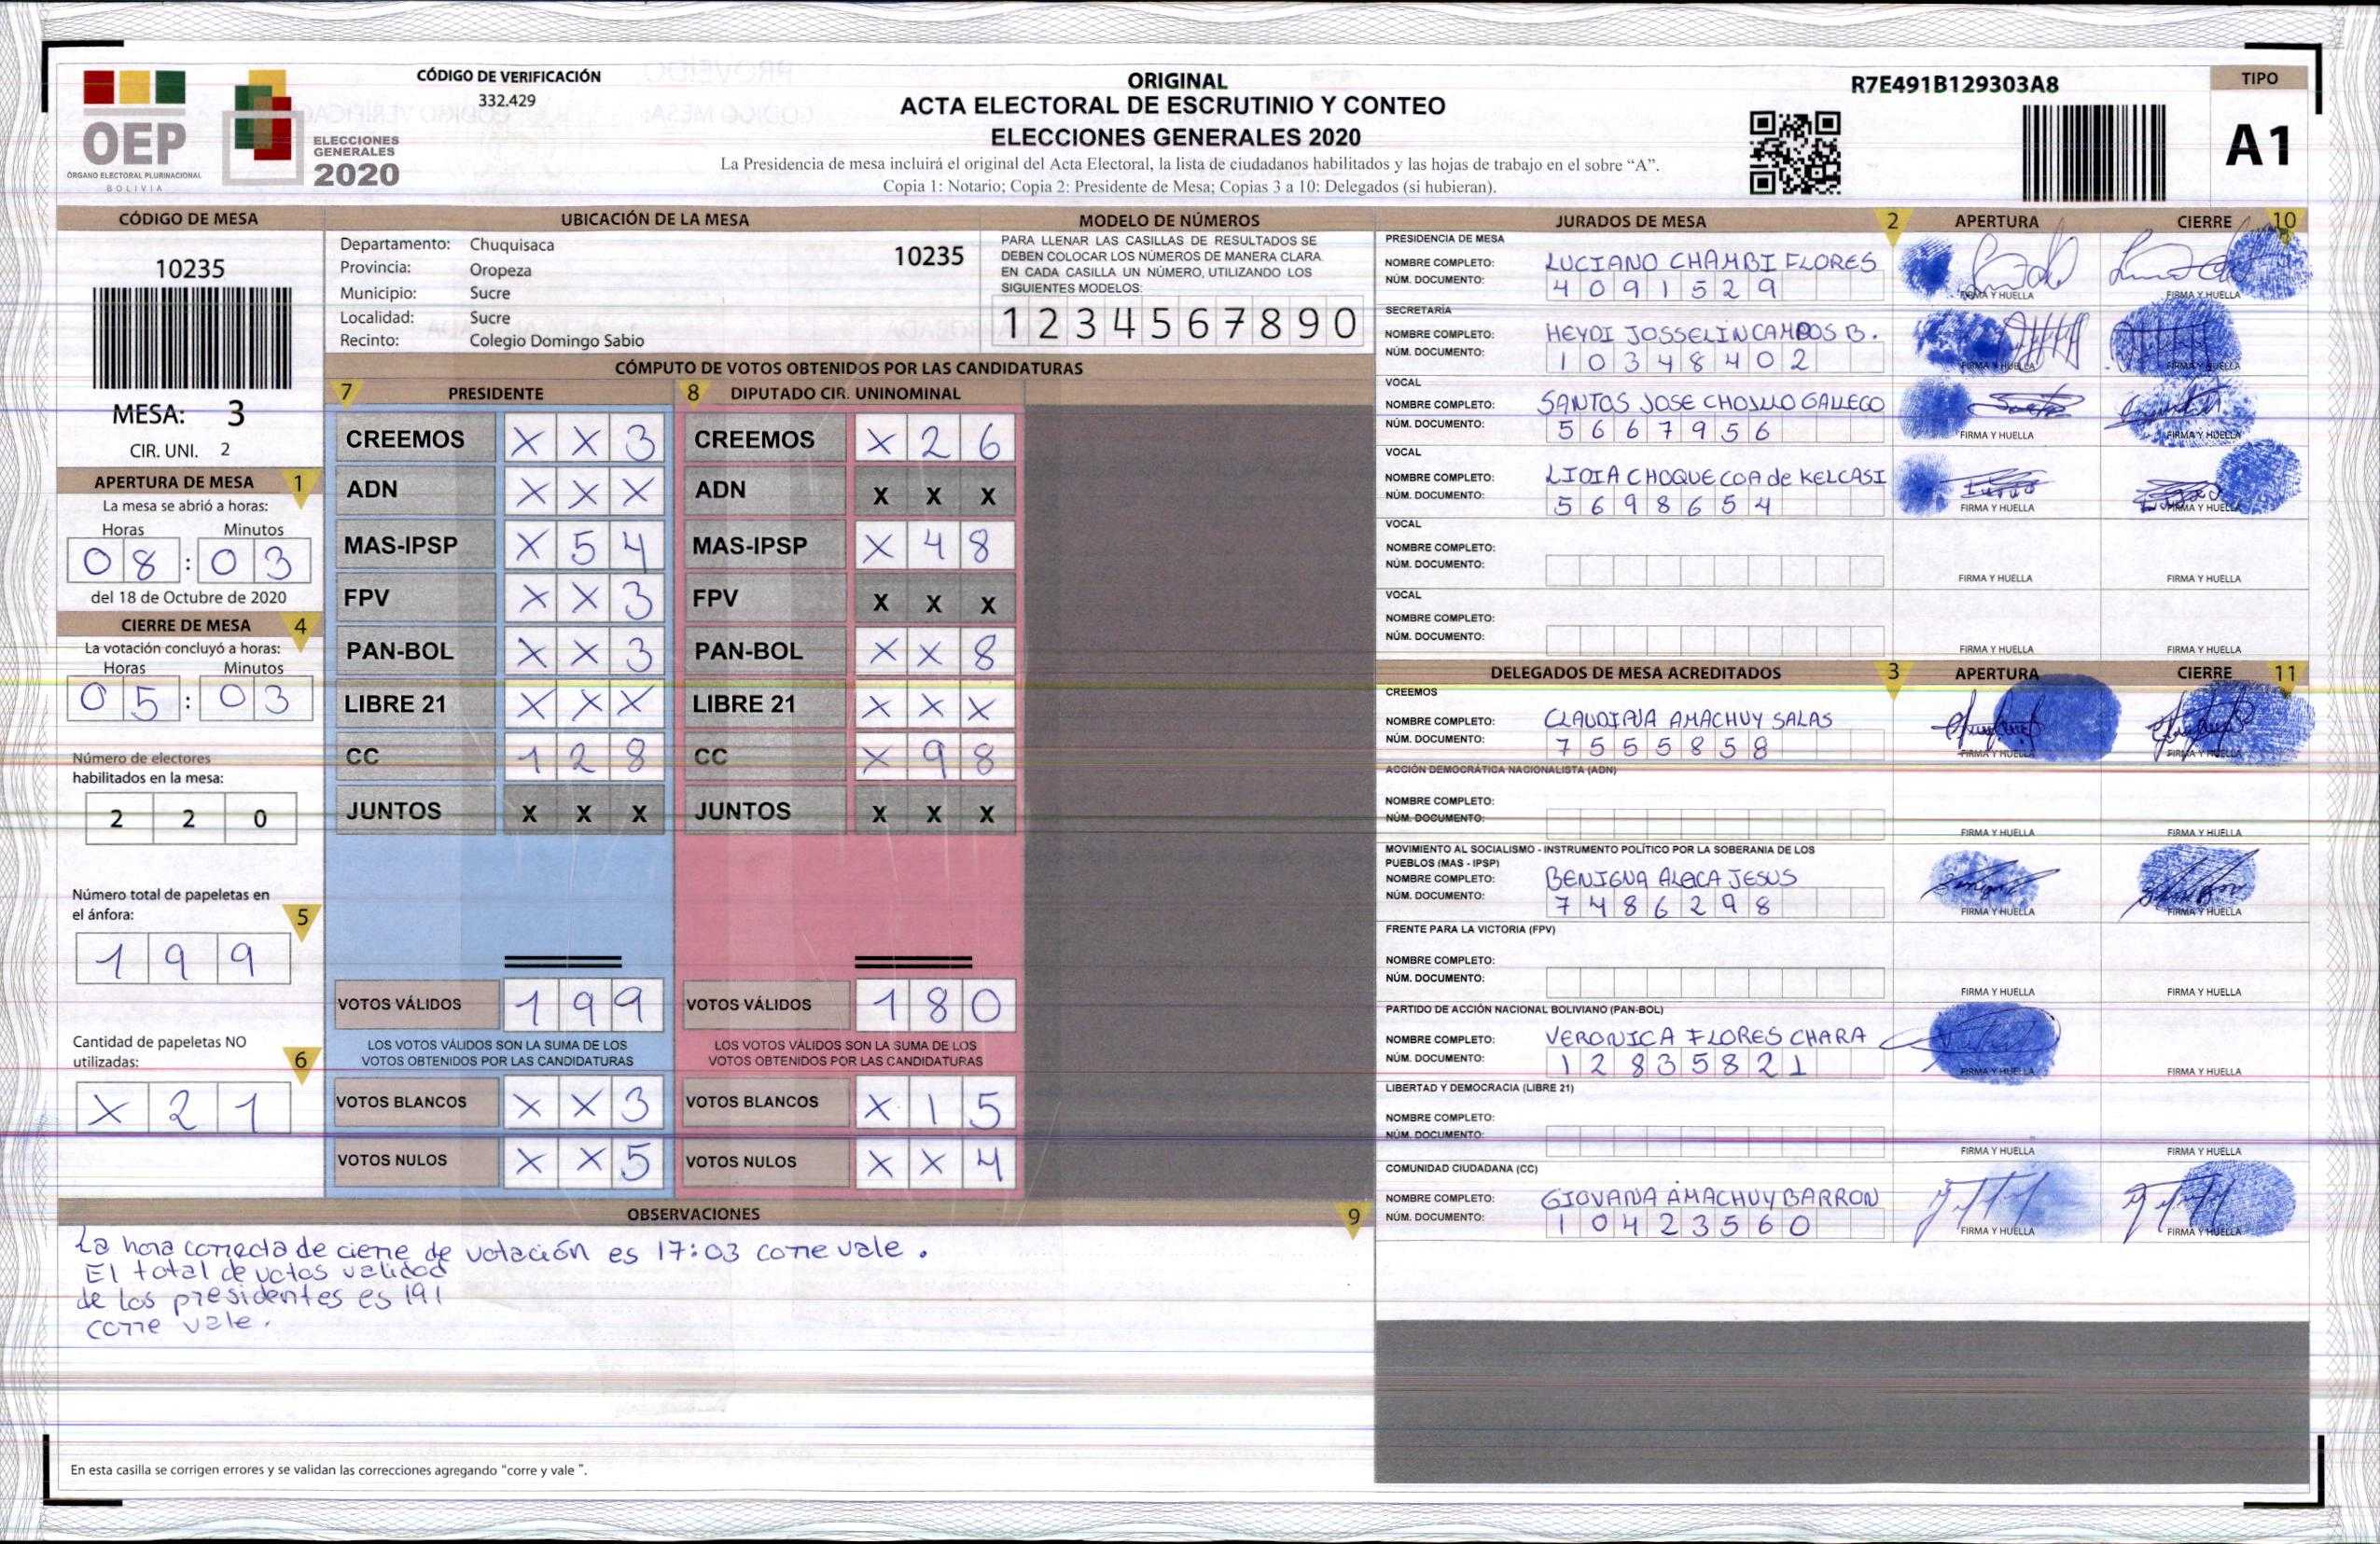 OEP
ÓRGANO ELECTORAL PLURINACIONAL
BOLIVIA
ELECCIONES
GENERALES
2020
CÓDIGO DE VERIFICACIÓN
332.429
ORIGINAL
ACTA ELECTORAL DE ESCRUTINIO Y CONTEO
ELECCIONES GENERALES 2020
La Presidencia de mesa incluirá el original del Acta Electoral, la lista de ciudadanos habilitados y las hojas de trabajo en el sobre “A”.
Copia 1: Notario; Copia 2: Presidente de Mesa; Copias 3 a 10: Delegados (si hubieran).
R7E491B129303A8
TIPO
A1
CÓDIGO DE MESA
10235
MESA: 3
CIR. UNI. 2
APERTURA DE MESA 1
La mesa se abrió a horas:
Horas Minutos
08:03
del 18 de Octubre de 2020
CIERRE DE MESA 4
La votación concluyó a horas:
Horas Minutos
05:03
Número de electores
habilitados en la mesa:
2 2 0
Número total de papeletas en
el ánfora:
5
1 9 9
Cantidad de papeletas NO
utilizadas:
6
X 2 1
UBICACIÓN DE LA MESA
Departamento: Chuquisaca 10235
Provincia: Oropeza
Municipio: Sucre
Localidad: Sucre
Recinto: Colegio Domingo Sabio
MODELO DE NÚMEROS
PARA LLENAR LAS CASILLAS DE RESULTADOS SE
DEBEN COLOCAR LOS NÚMEROS DE MANERA CLARA
EN CADA CASILLA UN NÚMERO, UTILIZANDO LOS
SIGUIENTES MODELOS:
1 2 3 4 5 6 7 8 9 0
CÓMPUTO DE VOTOS OBTENIDOS POR LAS CANDIDATURAS
7 PRESIDENTE 8 DIPUTADO CIR. UNINOMINAL
CREEMOS X X 3 CREEMOS X 2 6
ADN X X X ADN X X X
MAS-IPSP X 5 4 MAS-IPSP X 4 8
FPV X X 3 FPV X X X
PAN-BOL X X 3 PAN-BOL X X 8
LIBRE 21 X X X LIBRE 21 X X X
CC 1 2 8 CC X 9 8
JUNTOS X X X JUNTOS X X X
VOTOS VÁLIDOS 1 9 9 VOTOS VÁLIDOS 1 8 0
LOS VOTOS VÁLIDOS SON LA SUMA DE LOS LOS VOTOS VÁLIDOS SON LA SUMA DE LOS
VOTOS OBTENIDOS POR LAS CANDIDATURAS VOTOS OBTENIDOS POR LAS CANDIDATURAS
VOTOS BLANCOS X X 3 VOTOS BLANCOS X 1 5
VOTOS NULOS X X 5 VOTOS NULOS X X 4
OBSERVACIONES 9
La hora correcta de cierre de votación es 17:03 corre vale.
El total de votos validos
de los presidentes es 191
corre vale.
En esta casilla se corrigen errores y se validan las correcciones agregando "corre y vale ".
JURADOS DE MESA 2 APERTURA CIERRE 10
PRESIDENCIA DE MESA
NOMBRE COMPLETO: LUCIANO CHAMBI FLORES
NÚM. DOCUMENTO: 4091529
FIRMA Y HUELLA FIRMA Y HUELLA
SECRETARÍA
NOMBRE COMPLETO: HEYDI JOSSELIN CAMPOS B.
NÚM. DOCUMENTO: 10348402
FIRMA Y HUELLA FIRMA Y HUELLA
VOCAL
NOMBRE COMPLETO: SANTOS JOSE GALLEGO
NÚM. DOCUMENTO: 5667956
FIRMA Y HUELLA FIRMA Y HUELLA
VOCAL
NOMBRE COMPLETO: LIDIA CHOQUE COA de KELCASI
NÚM. DOCUMENTO: 5698654
FIRMA Y HUELLA FIRMA Y HUELLA
VOCAL
NOMBRE COMPLETO:
NÚM. DOCUMENTO:
FIRMA Y HUELLA FIRMA Y HUELLA
VOCAL
NOMBRE COMPLETO:
NÚM. DOCUMENTO:
FIRMA Y HUELLA FIRMA Y HUELLA
DELEGADOS DE MESA ACREDITADOS 3 APERTURA CIERRE 11
CREEMOS
NOMBRE COMPLETO: CLAUDINA AMACHUY SALAS
NÚM. DOCUMENTO: 7555858
FIRMA Y HUELLA FIRMA Y HUELLA
ACCIÓN DEMOCRÁTICA NACIONALISTA (ADN)
NOMBRE COMPLETO:
NÚM. DOCUMENTO:
FIRMA Y HUELLA FIRMA Y HUELLA
MOVIMIENTO AL SOCIALISMO - INSTRUMENTO POLÍTICO POR LA SOBERANIA DE LOS
PUEBLOS (MAS - IPSP)
NOMBRE COMPLETO: BENIGNA JESUS
NÚM. DOCUMENTO: 7486298
FIRMA Y HUELLA FIRMA Y HUELLA
FRENTE PARA LA VICTORIA (FPV)
NOMBRE COMPLETO:
NÚM. DOCUMENTO:
FIRMA Y HUELLA FIRMA Y HUELLA
PARTIDO DE ACCIÓN NACIONAL BOLIVIANO (PAN-BOL)
NOMBRE COMPLETO: VERONICA FLORES CHARA
NÚM. DOCUMENTO: 12835821
FIRMA Y HUELLA FIRMA Y HUELLA
LIBERTAD Y DEMOCRACIA (LIBRE 21)
NOMBRE COMPLETO:
NÚM. DOCUMENTO:
FIRMA Y HUELLA FIRMA Y HUELLA
COMUNIDAD CIUDADANA (CC)
NOMBRE COMPLETO: GIOVANA AMACHUY BARRON
NÚM. DOCUMENTO: 10423560
FIRMA Y HUELLA FIRMA Y HUELLA